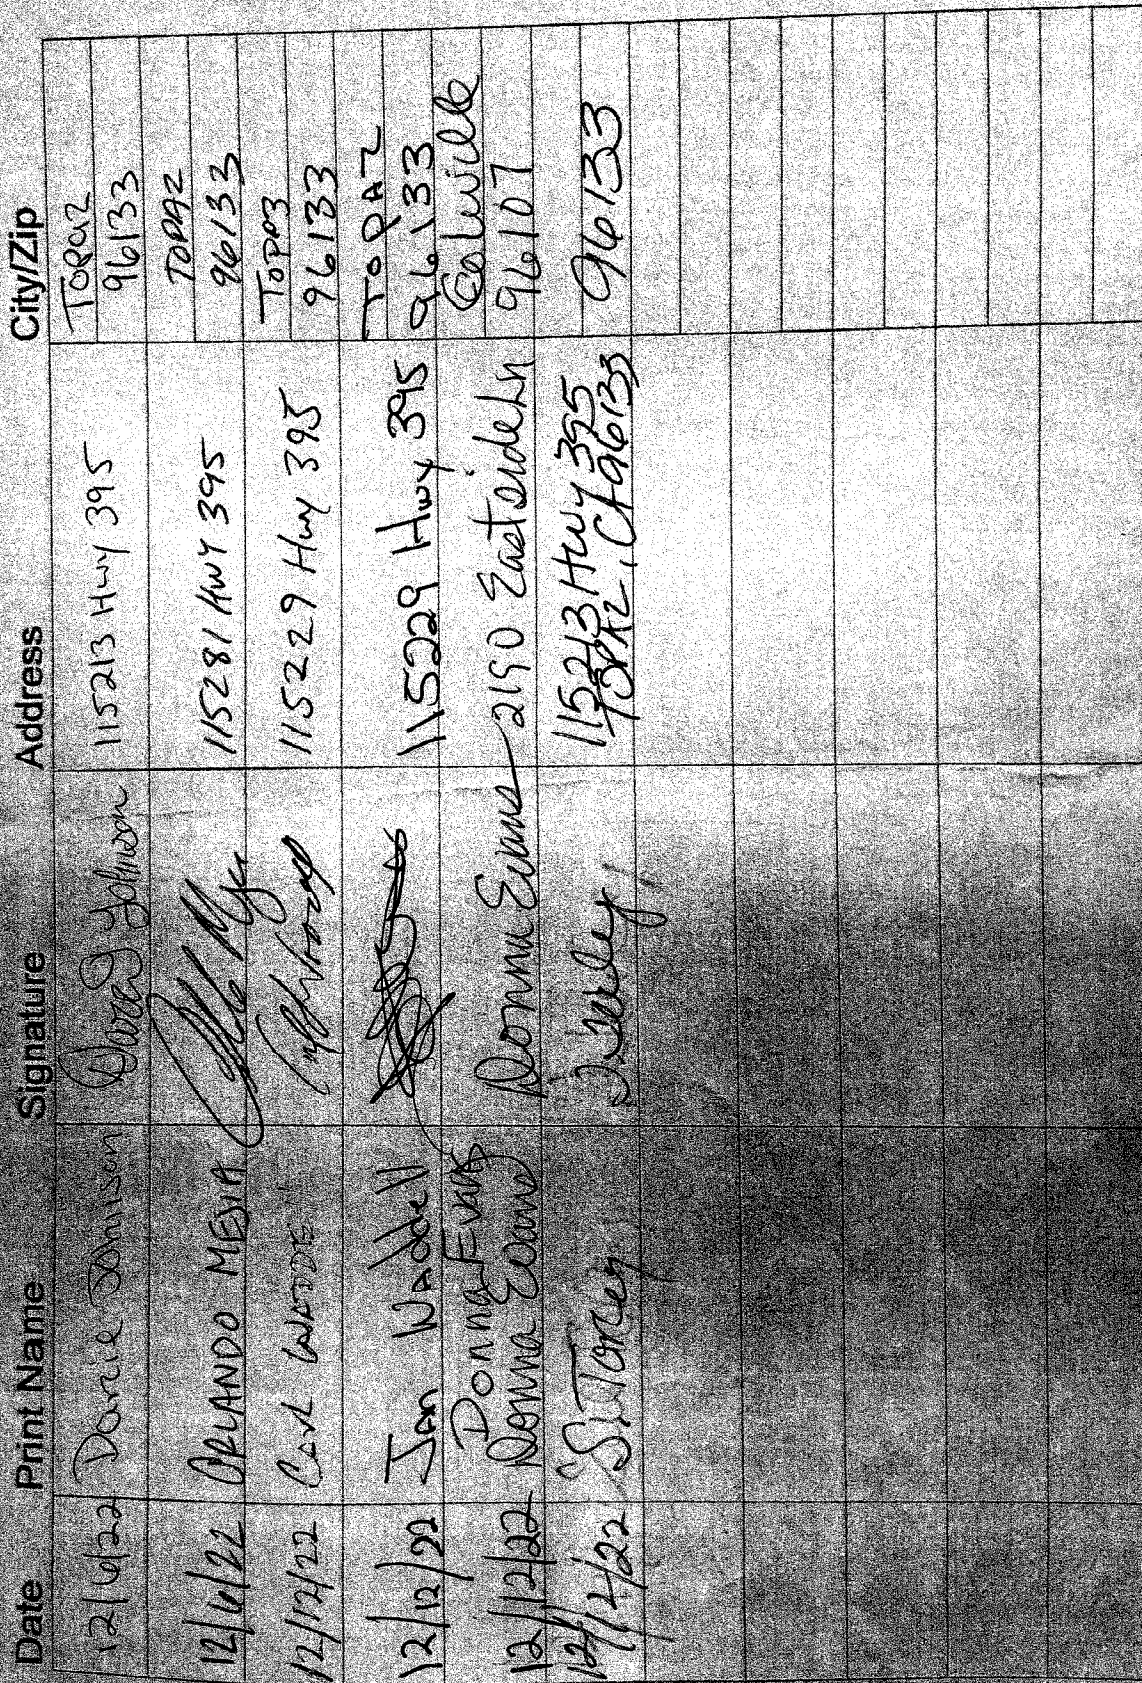 Date Print Name Signature Address City/Zip
12/6/22 Darcie Johnson Darcy Johnson 115213 Hwy 395 Topaz
96133
12/6/22 ORLANDO MESIA 115281 HWY 395 TOPAZ
96133
12/12/22 Carl 115229 Hwy 395 Topaz
96133
12/12/22 Jan Waddell 115229 Hwy 395 TOPAZ
96133
Donna Evans Coleville
12/12/22 Donna Evans Donna Evans 2190 Eastside Ln 96107
12/14/22 115213 Hwy 395 96133
TOPAZ, CA 96133